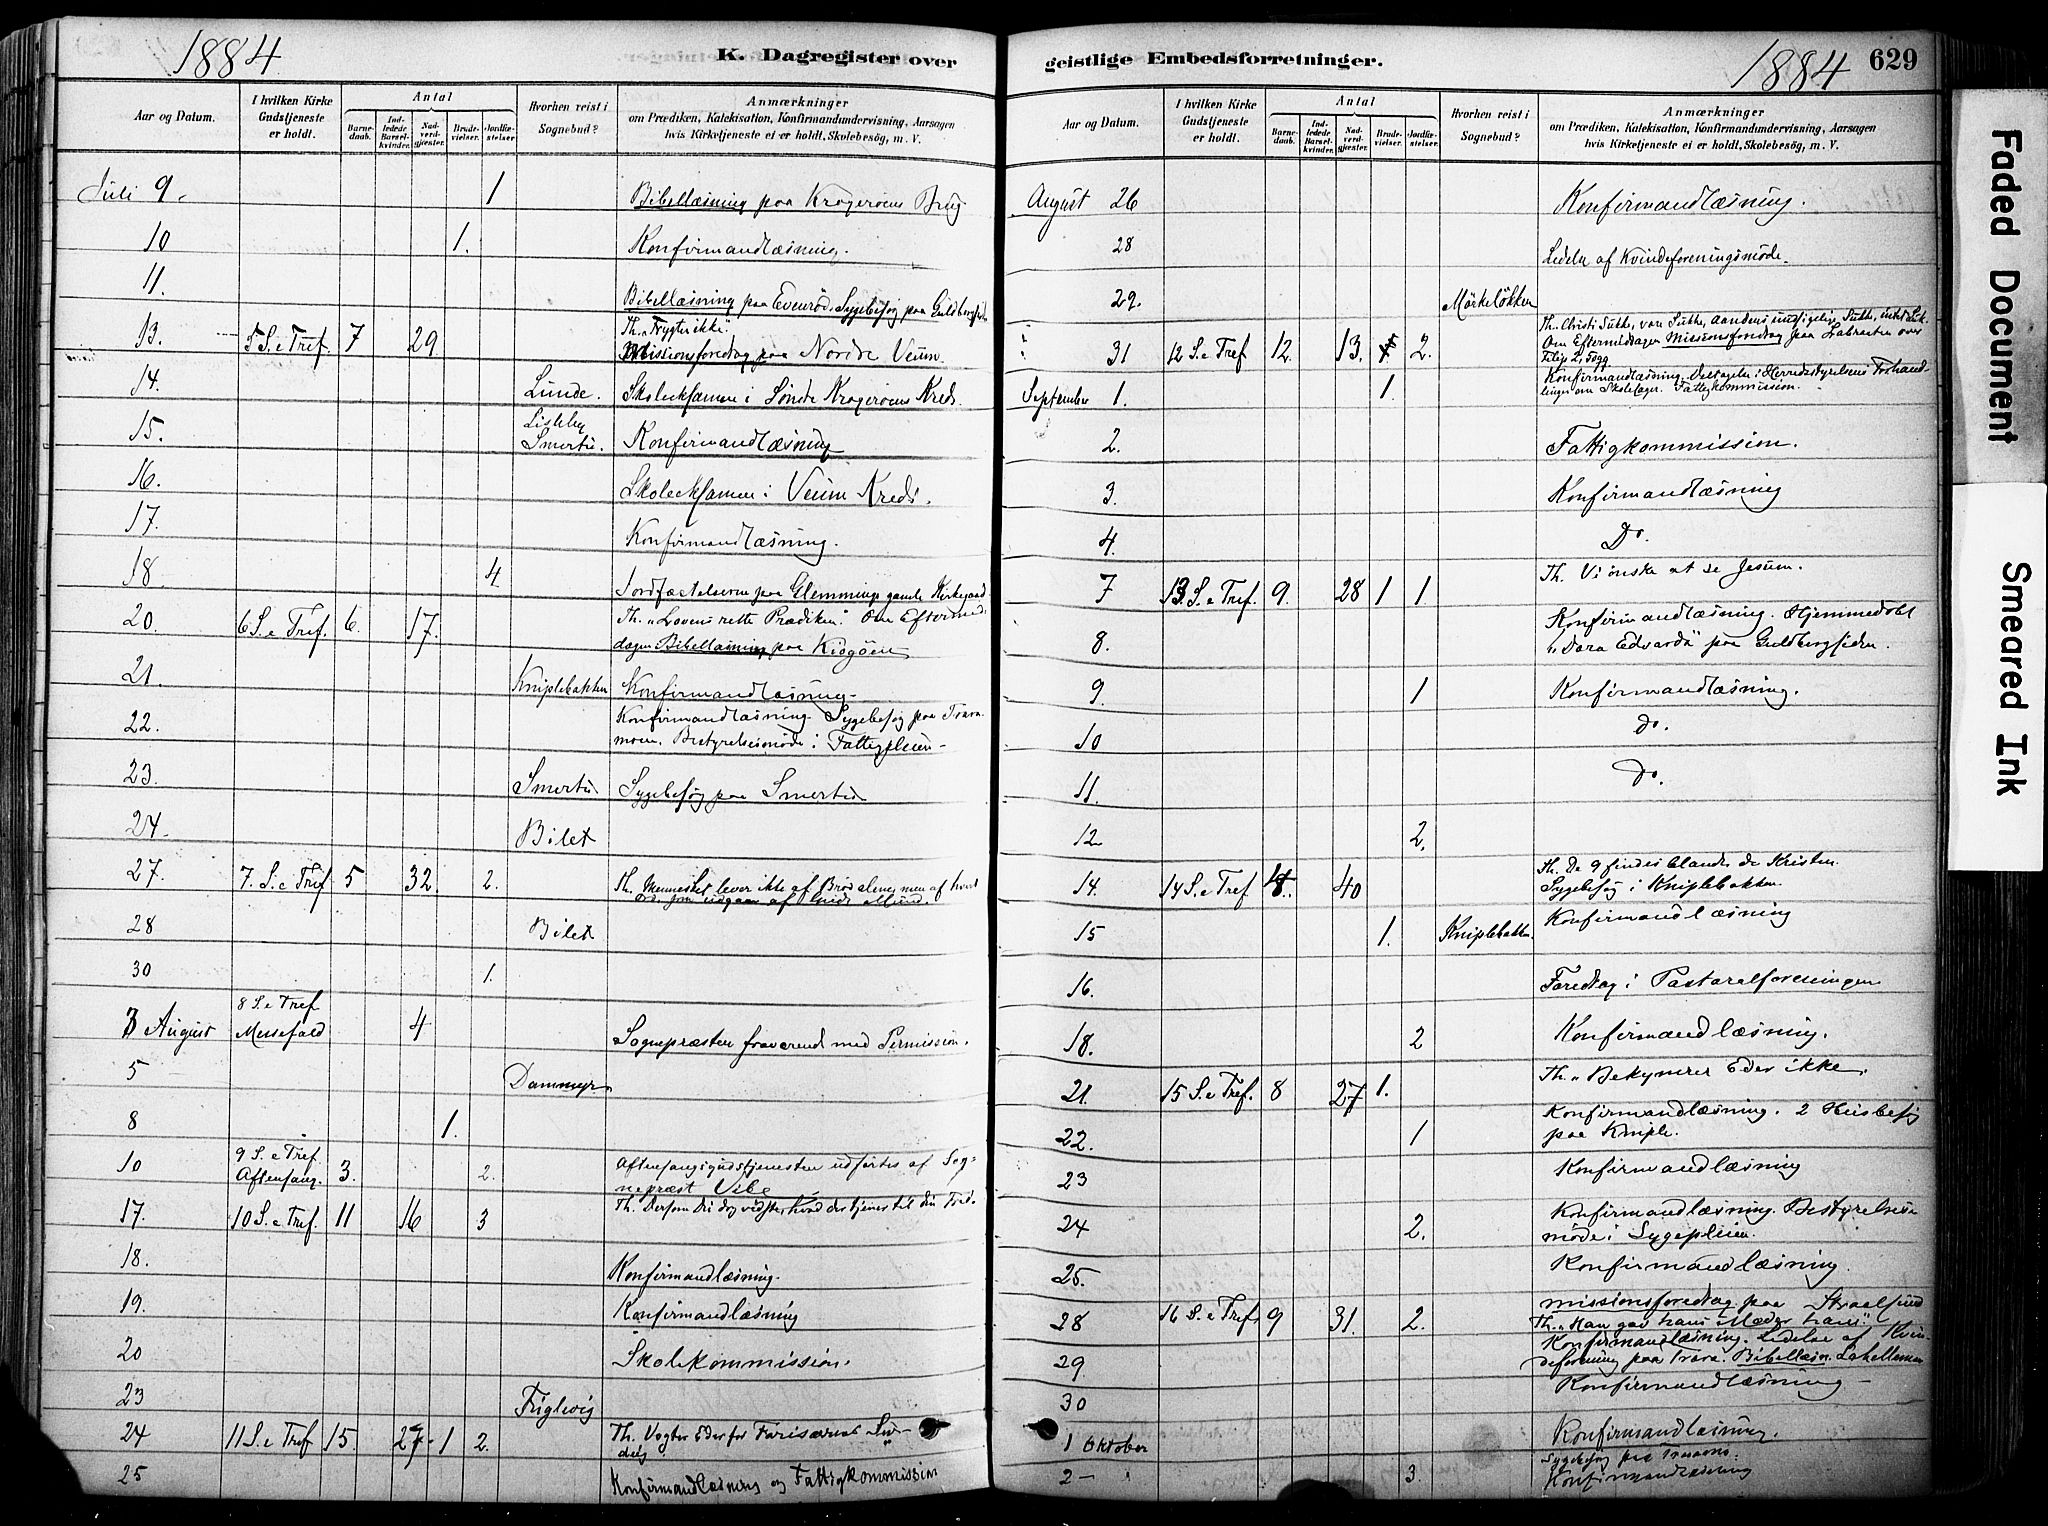 1884
K. Dagregister over
Aar og Datum.
I hvilken Kirke Gudstjeneste er holdt.
Antal
Barnedaab.
Indledede Barselkvinder.
Nadverdgjæster.
Brudevielser.
Jordfæstelser
Hvorhen reist i Sognebud?
Anmærkninger
om Prædiken, Katekisation, Konfirmandundervisning, Aarsagen
hvis Kirketjeneste ei er holdt, Skolebesøg, m. V.
Juli 9. 1 Bibellæsning paa Kragerøens Brug
10 1. Konfirmandlæsning.
11. Bibellæsning paa Evenrød. Sygebesøg paa
13. 5 S. e Tref. 7 29 Th. "Frygter ikke"
Missionsforedrag paa Nordre Veum.
14. Lunde. Skoleeksamen i Søndre Kragerøens Kreds.
15. Lisleby Smertu. Konfirmandlæsning
16. Skoleeksamen i Veum Kreds.
17. Konfirmandlæsning.
18. 4 Jordfæstelserne paa Glemminge gamle Kirkegaard
20. 6 S. e Tref. 6. 17. Th. "Lovens rette Prædiken". Om Eftermid-
dagen Bibellæsning paa Kjøgøen
21. Kniplebakken Konfirmandlæsning.
22. Konfirmandlæsning. Sygebesøg paa Trara-
moen. Bestyrelsesmøde i Fattigpleien.
23. Smertu Sygebesøg paa Smertu
24. Bilet
27. 7. S. e Tref 5 32. 2. Th. Mennesket lever ikke af Brød alene, men af hvert
Ord, som udgaar af Guds Mund.
28 Bilet
30 1.
3 August 8 S. e Tref Messefald 4 Sognepræsten fraværende med Permission.
5 Dammyr
8 1.
10 9 S. e Tref Aftensang. 3. 2. Aftensangsgudstjenesten udførtes af Sog-
nepræst Vibe
17. 10 S. e Tref. 11 16 3 Th. Dersom Du dog vidste, hvad der tjener til din Fred.
18. Konfirmandlæsning.
19. Konfirmandlæsning
20 Skolekommission.
23 Triglevig
24 11 S. e Tref 15. 27 1 2. Th. Vogter Eder for Farisæernes Sur-
deig.
25 Konfirmandlæsning og Fattigkommission
geistlige Embedsforretninger.
1884
629
Aar og Datum.
I hvilken Kirke Gudstjeneste er holdt.
Antal
Barnedaab.
Indledede Barselkvinder.
Nadverdgjæster.
Brudevielser.
Jordfæstelser.
Hvorhen reist i Sognebud?
Anmærkninger
om Prædiken, Katekisation, Konfirmandundervisning, Aarsagen
hvis Kirketjeneste ei er holdt, Skolebesøg, m. V.
August 26 Konfirmandlæsning.
28 Ledelse af Kvindeforeningsmøde.
29. Mørkeløkken
" 31 12 S. e Tref 12. 13. 2. Th. Christi Sukke, vore Sukke, Aandens uudsigelige Sukke,
Om Eftermiddagen Missionsforedrag paa Labraaten over
Filip 2,
September 1. 1. Konfirmandlæsning. Deltagelse i Herredsstyrelsens Forhand-
linger om Skolesager. Fattigkommission.
2. Fattigkommission.
3. Konfirmandlæsning
4. Do.
7 13. S. e Tref. 9. 28 1 1 Th. Vi ønske at se Jesum.
8. Konfirmandlæsning. Hjemmedøbt
b. Dora Edvarda paa
9. 1 Konfirmandlæsning.
10 Do.
11. Do.
12 2.
14. 14 S. e Tref. 40 Th. De 9 findes blandt de Kristne.
Sygebesøg i Kniplebakken.
15 1. Kniplebakken. Konfirmandlæsning
16. Foredrag i Pastoralforeningen
18. 2 Konfirmandlæsning.
21. 15 S. e Tref. 8 27 1. Th. "Bekymrer Eder ikke.
22. 1 Konfirmandlæsning. 2 Husbesøg
paa Kniple.
23 Konfirmandlæsning
24 2. Konfirmandlæsning. Bestyrelses-
møde i Sygepleien.
25. Konfirmandlæsning.
28 16 S. e Tref. 9 31. 2. Missionsforedrag paa Straalsund
Th. "Han gav hans Moder ham"
29. Konfirmandlæsning. Ledelse af Kvin-
deforening paa Trara. Bibellæsn.
30 Konfirmandlæsning
1 Oktober Konfirmandlæsning.
2 - " 3. Sygebesøg paa
Konfirmandlæsning
Faded Document
Smeared Ink